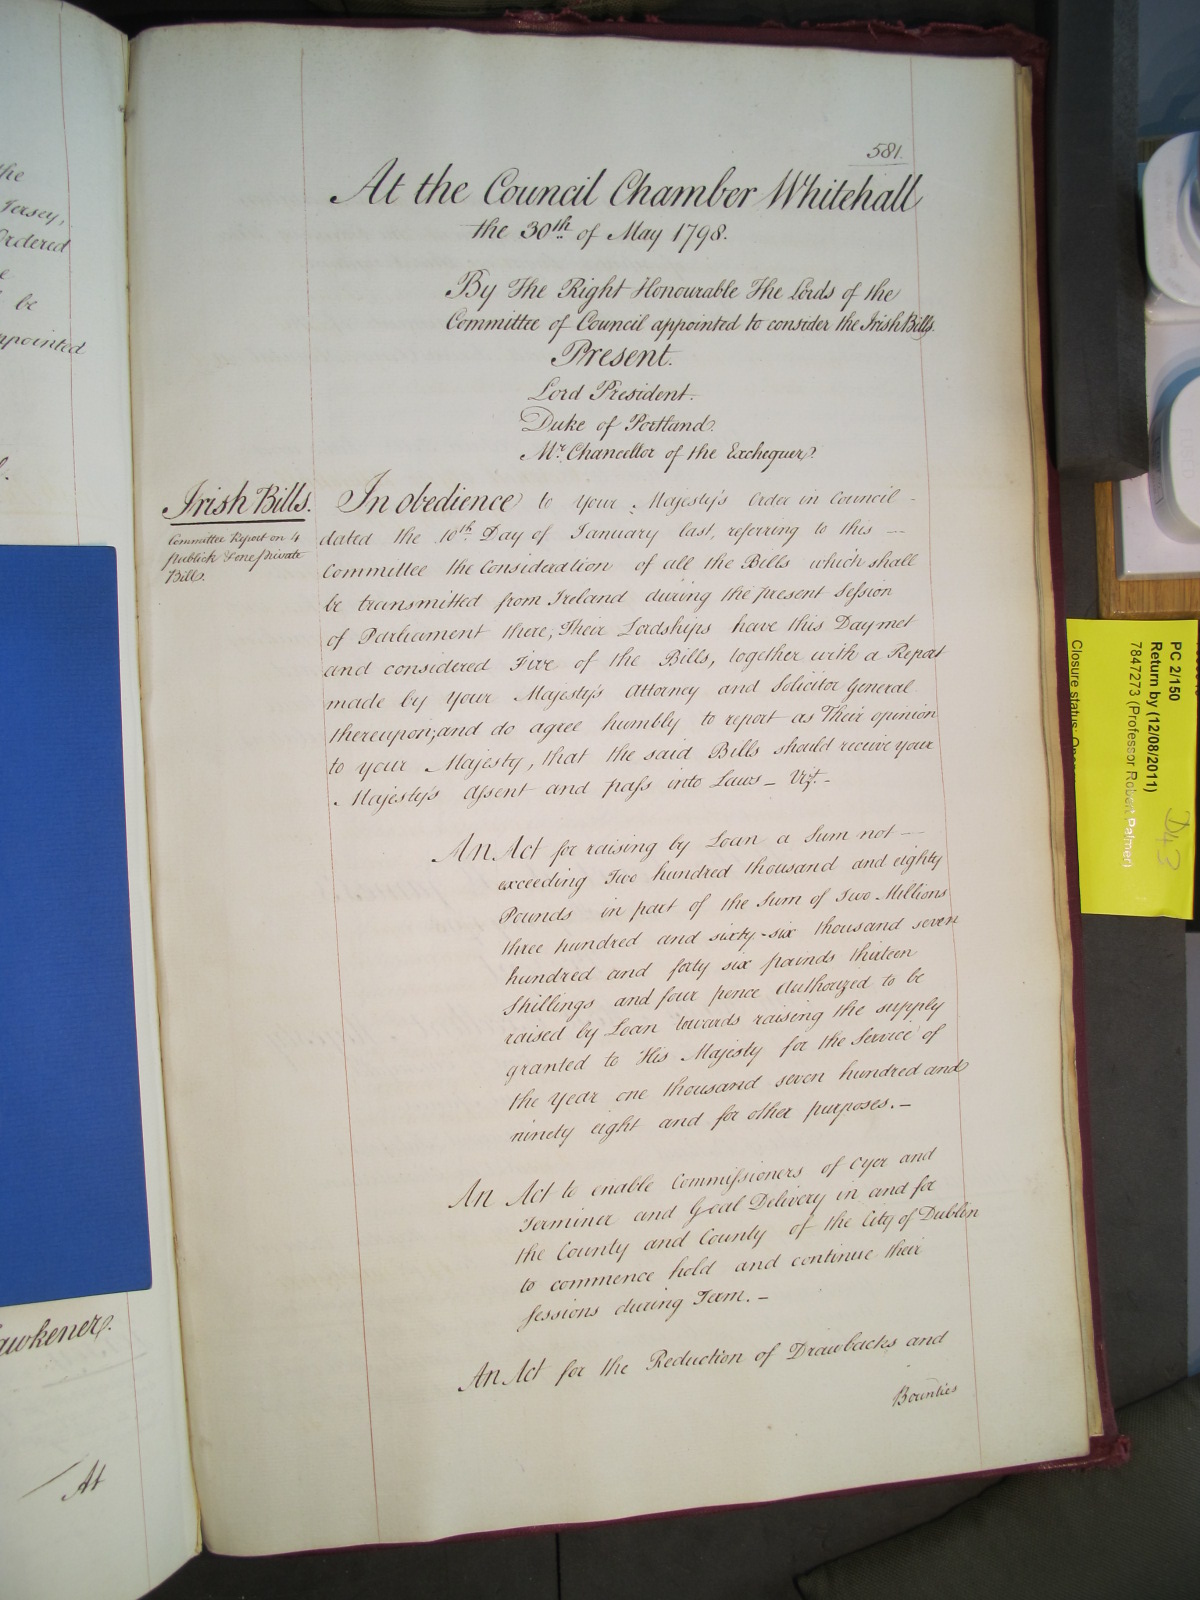 the
Jersey,
Ordered
be
appointed
awkener.
At
581.
At the Council Chamber Whitehall
the 30th of May 1798.
By The Right Honourable The Lords of the
Committee of Council appointed to consider the Irish Bills.
Present.
Lord President.
Duke of Portland.
Mr. Chancellor of the Exchequer.
Irish Bills.
Committee Report on 4
publick & one private
Bill.
In obedience to Your Majesty's Order in Council -
dated the 10th Day of January last, referring to this —
Committee the Consideration of all the Bills which shall
be transmitted from Ireland during the present Session
of Parliament there, Their Lordships have this Day met
and considered Five of the Bills, together with a Report
made by Your Majesty's Attorney and Solicitor General
thereupon; and do agree humbly to report as Their opinion
to your Majesty, that the said Bills should receive your
Majesty's Assent and pass into Laws - Vizt. -
An Act for raising by Loan a Sum not —
exceeding Two hundred thousand and eighty
Pounds in part of the Sum of Two Millions
three hundred and sixty-six thousand seven
hundred and forty six pounds thirteen
Shillings and four pence Authorized to be
raised by Loan towards raising the supply
granted to His Majesty for the Service of
the Year one thousand seven hundred and
ninety eight and for other purposes. -
An Act to enable Commissioners of Oyer and
Terminer and Goal Delivery in and for
the County and County of the City of Dublin
to commence hold and continue their
Sessions during Term. -
An Act for the Reduction of Drawbacks and
Bounties
PC 2/150
Return by (12/08/2011)
7847273 (Professor Robert Palmer)
Closure status: Open
D43